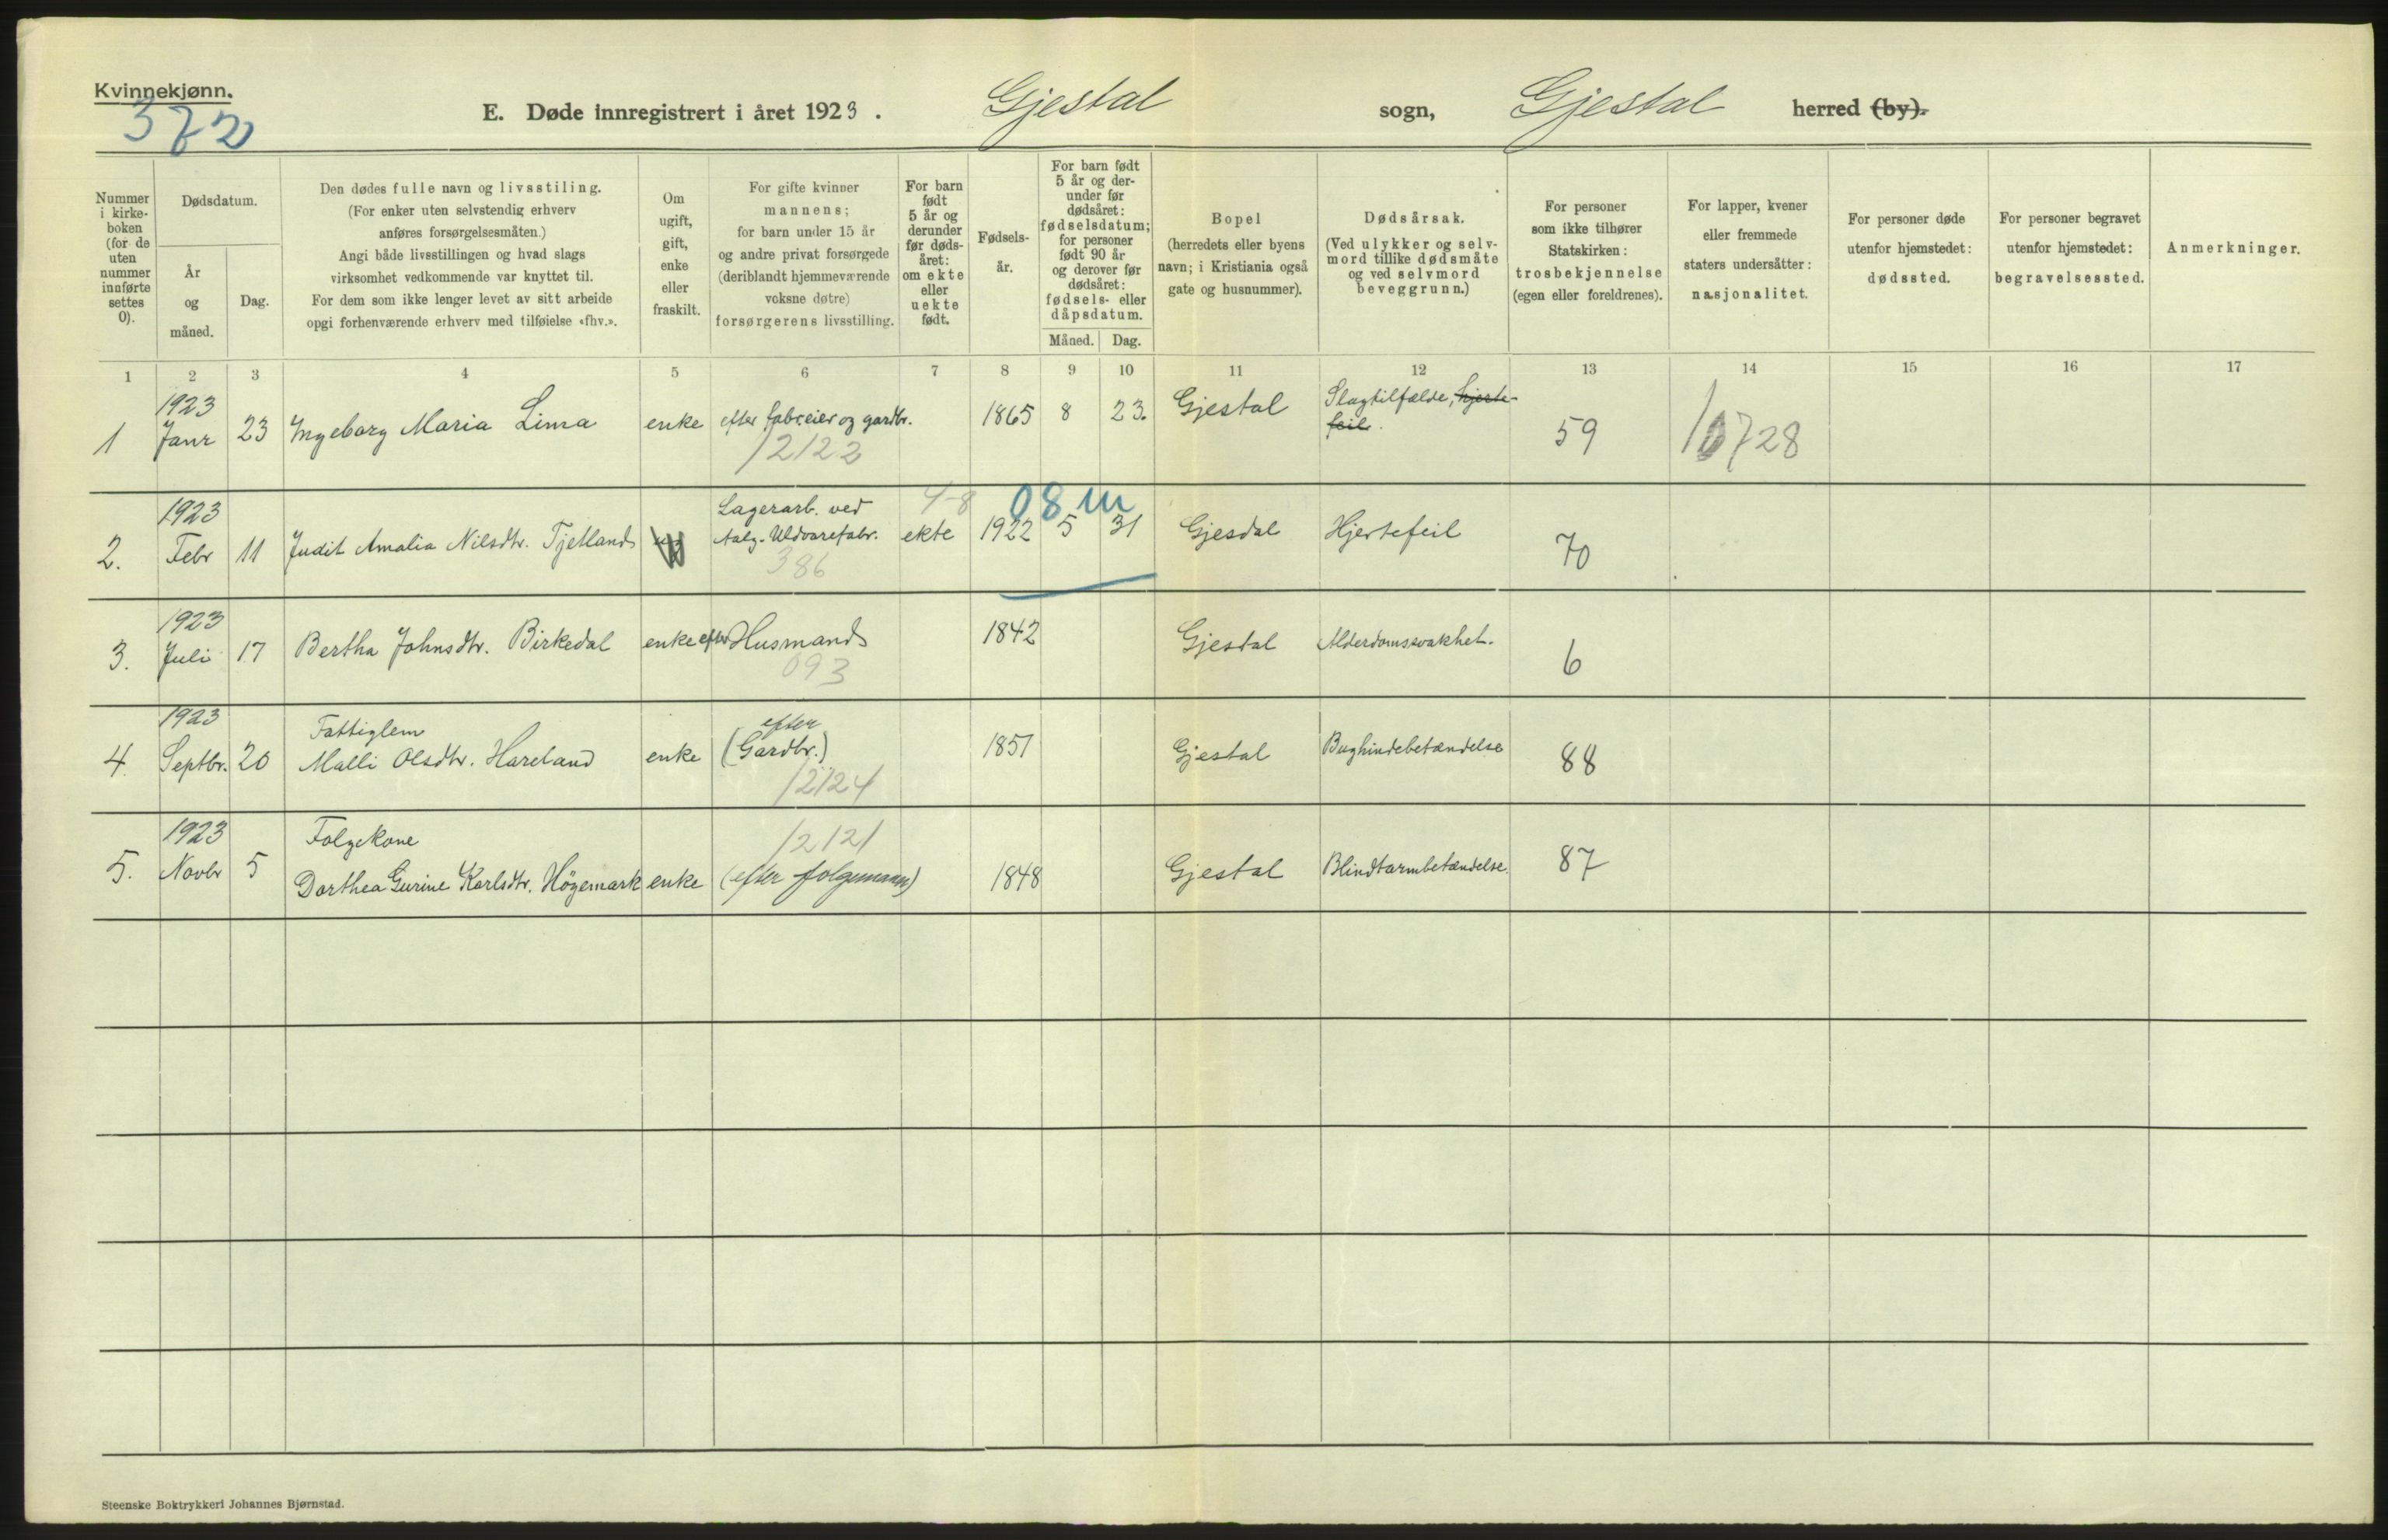 Kvinnekjønn.
372
E. Døde innregistrert i året 1923. Gjestal sogn, Gjestal herred (by).
Nummer i kirke-boken (for de uten nummer innførte settes 0).
Dødsdatum.
År og måned.
Dag.
Den dødes fulle navn og livsstiling.
(For enker uten selvstendig erhverv
anføres forsørgelsesmåten.)
Angi både livsstillingen og hvad slags
virksomhet vedkommende var knyttet til.
For dem som ikke lenger levet av sitt arbeide
opgi forhenværende erhverv med tilføielse «fhv.».
Om ugift, gift, enke eller fraskilt.
For gifte kvinner
mannens;
for barn under 15 år
og andre privat forsørgede
(deriblandt hjemmeværende
voksne døtre)
forsørgerens livsstilling.
For barn født 5 år og derunder før døds-året: om ekte eller uekte født.
Fødsels-år.
For barn født
5 år og der-
under før
dødsåret:
fødselsdatum;
for personer
født 90 år
og derover før
dødsåret:
fødsels- eller
dåpsdatum.
Måned. Dag.
Bopel
(herredets eller byens
navn; i Kristiania også
gate og husnummer).
Dødsårsak.
(Ved ulykker og selv-
mord tillike dødsmåte
og ved selvmord
beveggrunn.)
For personer
som ikke tilhører
Statskirken:
trosbekjennelse
(egen eller foreldrenes).
For lapper, kvener
eller fremmede
staters undersåtter:
nasjonalitet.
For personer døde
utenfor hjemstedet:
dødssted.
For personer begravet
utenfor hjemstedet:
begravelsessted.
Anmerkninger.
1 2 3 4 5 6 7 8 9 10 11 12 13 14 15 16 17
1 1923 Janr 23 Ingeborg Maria Lima enke efter fabr.eier og gardbr. 12122 1865 8 23. Gjestal Slagtilfælde, hjerte-
feil. 59 10728
2. 1923 Febr 11 Judit Amalia Nilsdtr. Tjetland Lagerarb. ved
Aalg. Uldvarefabr. 386 4-8 ekte 1922 08 m 5 31 Gjesdal Hjertefeil 70
3. 1923 Juli 17 Bertha Johnsdtr. Birkedal enke efter Husmand 093 1842 Gjestal Alderdomssvakhet. 6
4. 1923 Septbr. 20 Fattiglem
Malli Olsdtr. Hareland enke efter
(Gardbr.) 12124 1851 Gjestal Bughindebetændelse 88
5. 1923 Novbr 5 Folgekone
Dorthea Gurine Karlsdtr. Högemark enke 12121
(efter folgemann) 1848 Gjestal Blindtarmbetændelse. 87
Steenske Boktrykkeri Johannes Bjørnstad.